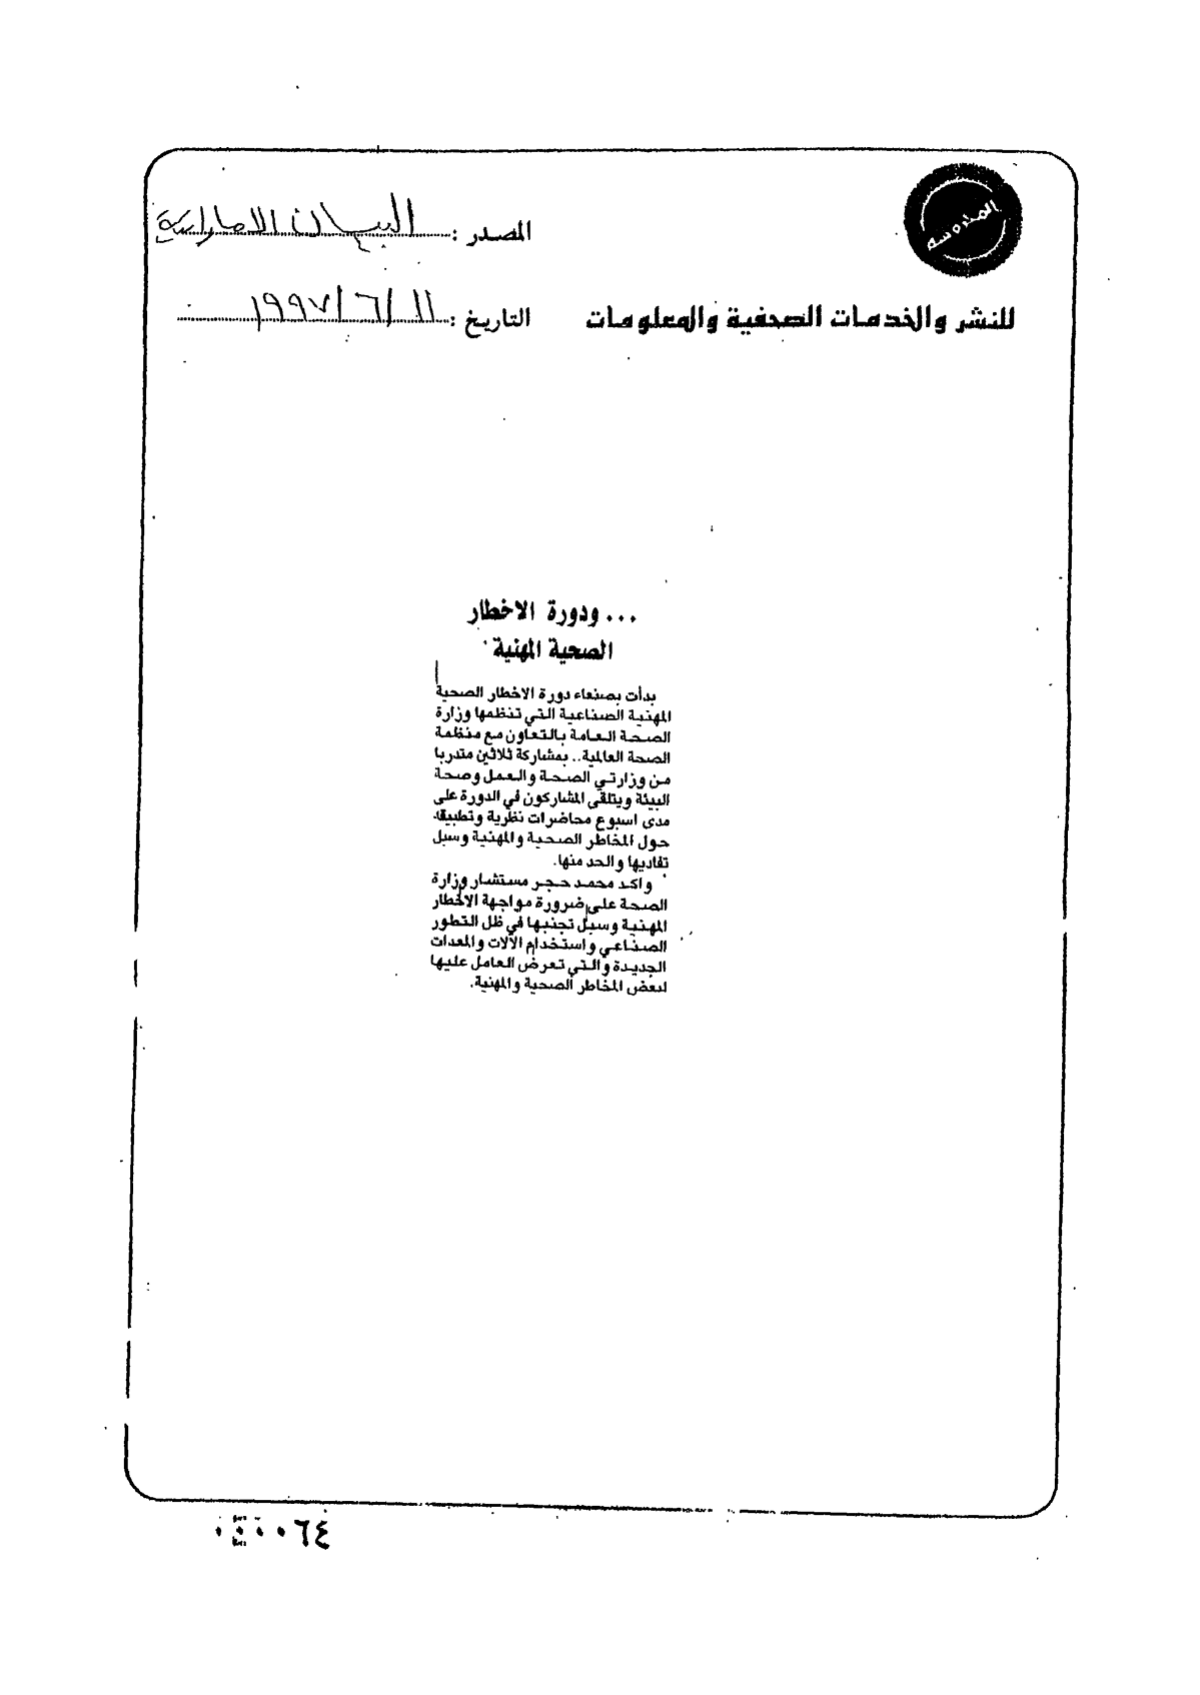 المدروسه
المصدر : البيان الاماراتية
للنشر والخدمات الصحفية والمعلومات
التاريخ : ١١/٦/١٩٩٧
... ودورة الاخطار
الصحية المهنية
بدأت بصنعاء دورة الاخطار الصحية
المهنية الصناعية التي تنظمها وزارة
الصحة العامة بالتعاون مع منظمة
الصحة العالمية.. بمشاركة ثلاثين متدربا
من وزارتي الصحة والعمل وصحة
البيئة ويتلقى المشاركون في الدورة على
مدى اسبوع محاضرات نظرية وتطبيقا.
حول المخاطر الصحية والمهنية وسبل
تفاديها والحد منها.
واكد محمد حجر مستشار وزارة
الصحة على ضرورة مواجهة الاخطار
المهنية وسبل تجنبها في ظل التطور
الصناعي واستخدام الآلات والمعدات
الجديدة والتي تعرض العامل عليها
لبعض المخاطر الصحية والمهنية.